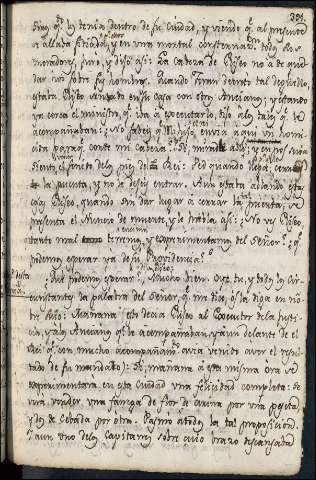 391.
q.e tenia dentro de su Ciudad, y viendo q.e al presente
se allaba sitiado, y en una mortal consternac.n todos sus
moradores, juró, y dijo asi: La cabeza de Eliseo no a de que
dar oy sobre sus hombros. Quando Joran decretó tal deguello,
estaba Eliseo sentado en su Casa con otros Ancianos; y estando
ya cerca el ministro, q.e iba a executarlo, dijo a los q.e le
acompañaban: ¿No sabeis q.e M. hijo, envia aqui un homi
cida para q.e corte mi cabeza?
siento el sonido de los pies de su Rei: Pero quando llegue, cerrad
la puerta, y no le dejeis entrar. Aun estaba ablando esta
Eliseo, quando sin dar lugar a cerrar la puerta, se
presenta el Nuncio de muerte, y le habla asi: ¿No ves Eliseo
quanto mal tenemos, y experimentamos del Señor? ¿q.e
podemos esperar ya de su Providencia?
¿Que podemos esperar? Mucho bien. Oye tu, y todos los Cir
cunstantes la palabra del Señor, q.e me dice, os la diga en nom
bre suyo: Mañana (esto decia Eliseo al Executor de la Justi
cia, y a los Ancianos q.e le acompañaban, y aun delante de el
Rei q.e con mucho acompañam.to avia venido a ver el resul
tado de su mandato): Si; mañana a esta misma ora se
experimentara en esta Ciudad una felicidad completa: Se
vera vender una fanega de flor de arina por una peseta,
y dos de Cebada por otra. Pasmó a todos la tal proposicion.
Y aun uno de los Capitanes sobre cuio brazo descansaba